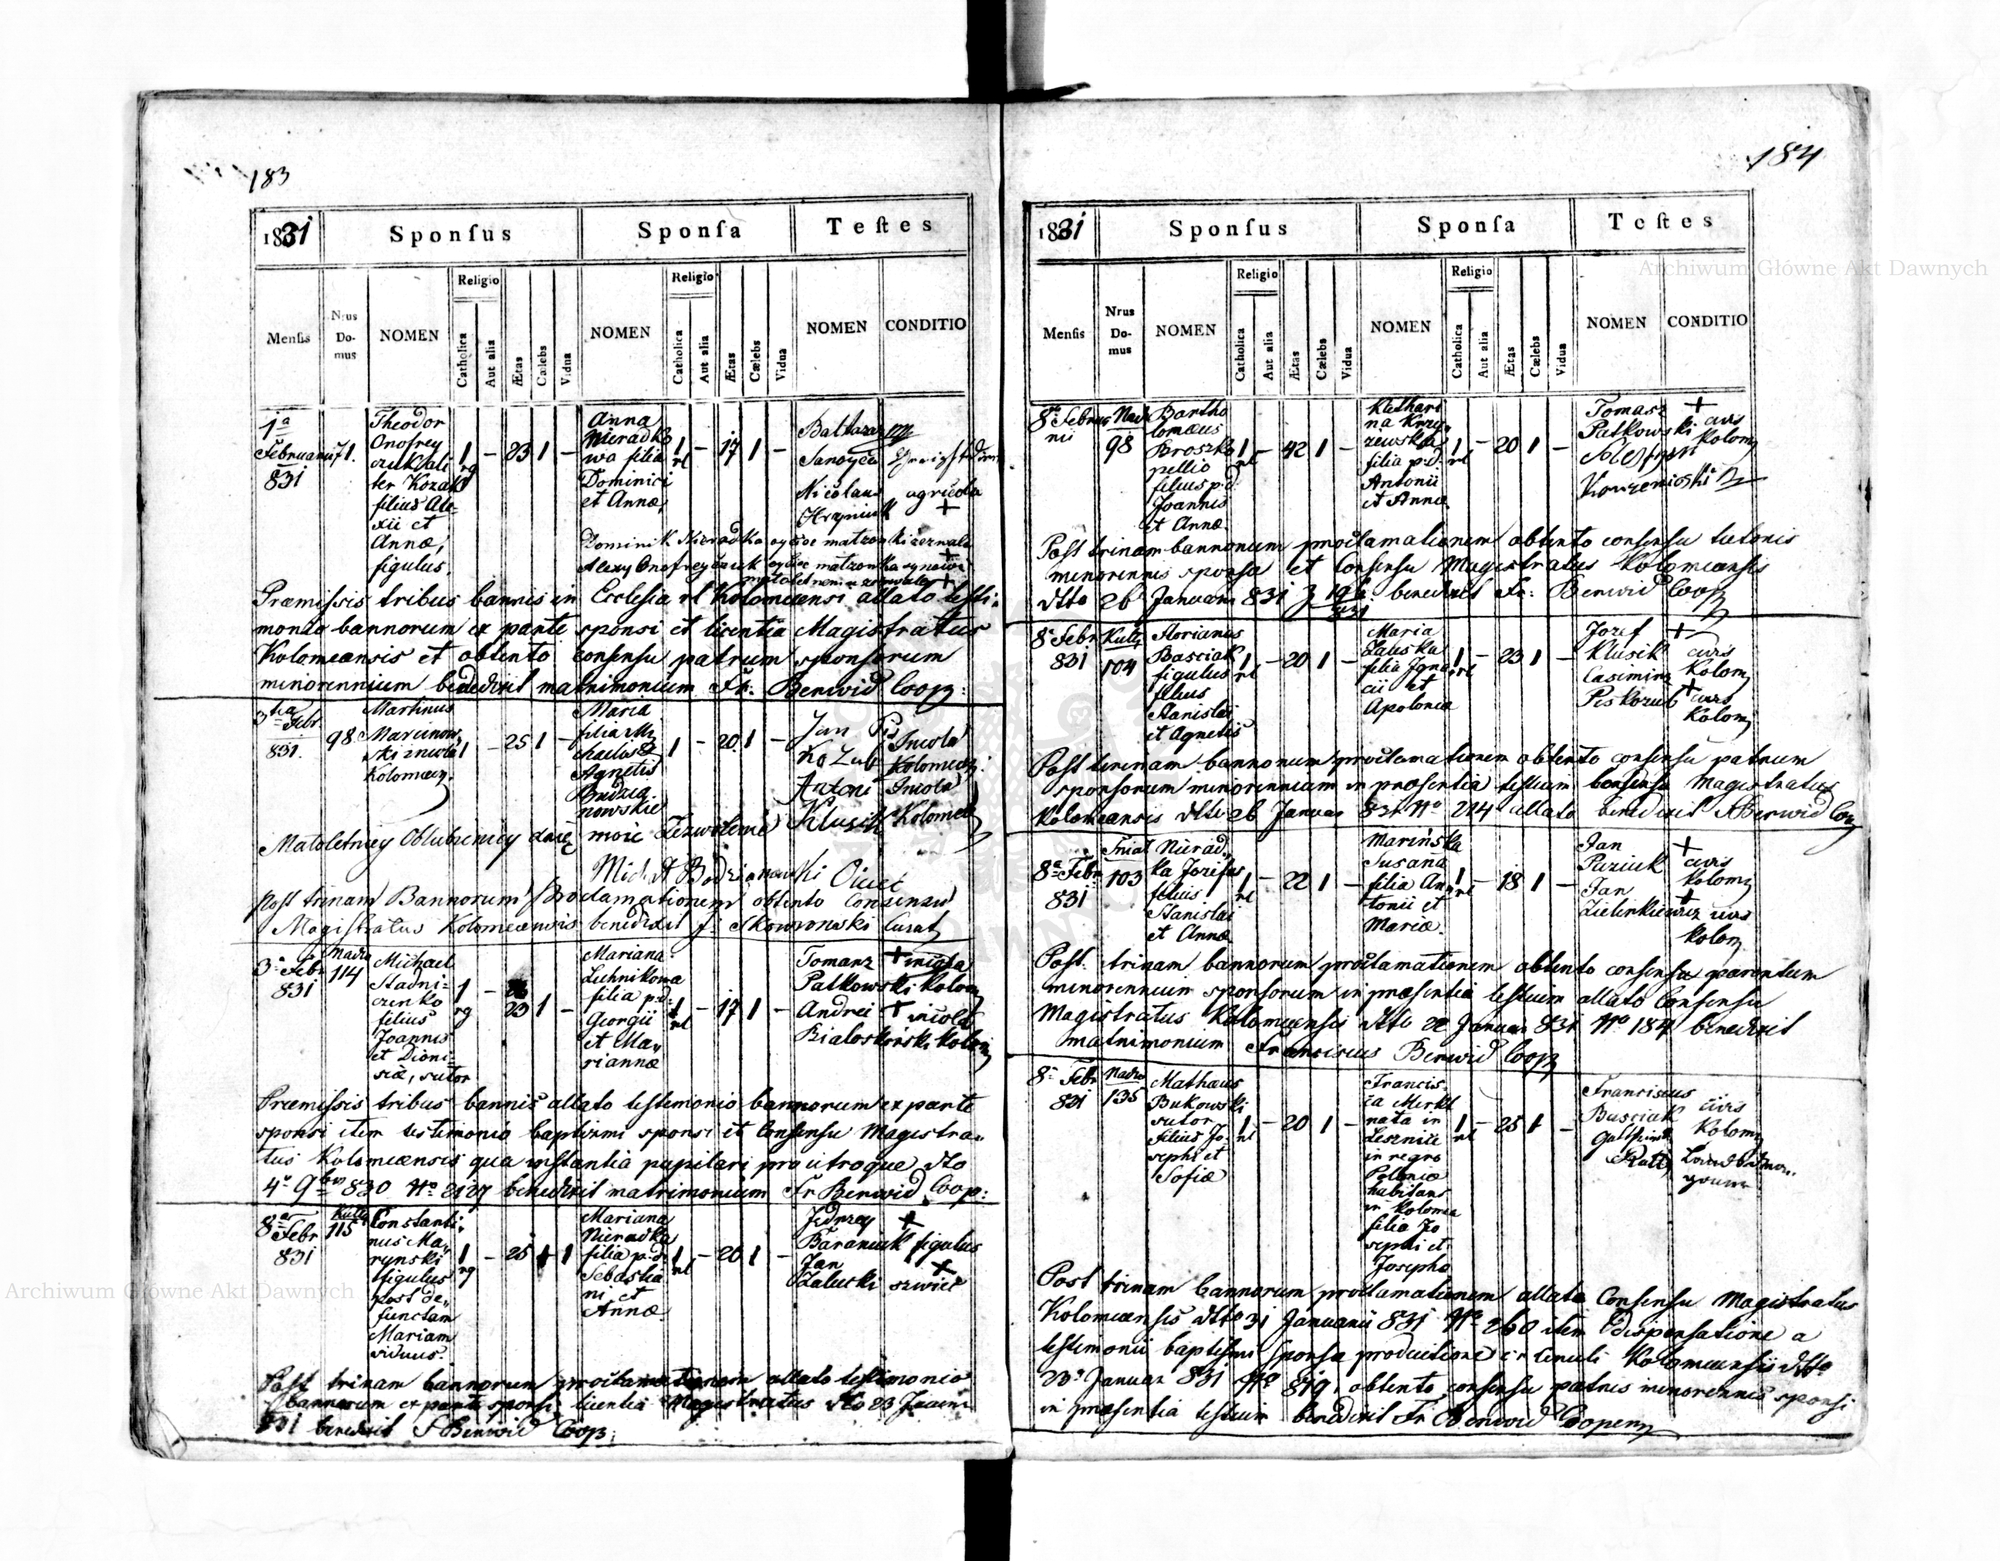 183
1831
Sponsus
Sponsa
Testes
Mensis
Nrus Domus
NOMEN
Religio
Catholica
Aut alia
Ætas
Cælebs
Vidua
NOMEN
Religio
Catholica
Aut alia
Ætas
Cælebs
Vidua
NOMEN
CONDITIO
1ª
Februarii
831
71.
Theodor
Onofrey
czuk Vali
ter Kozak
filius Ale-
xii et
Annæ,
figulus.
1
rg
– 23 1 –
Anna
Nieradko
wa filia
Dominici
et Annæ,
1
rl
– 17 1 –
Baltazar
Sanoyca
Nicolaus
Hrapniuk
agricola
+
Præmissis tribus bannis in Ecclesia rl Kolomeensi allato testi-
monio bannorum ex parte sponsi et licentia Magistratus
Kolomeænsis et obtento consensu patrum sponsorum
minorennium benedixit matrimonium Fr. Berwid Coop:
3tia Febr
831.
98
Martinus
Marcinow
ski incola
Kolomeen:
1 – 25 1 –
Maria
filia Mi
chaelis &
Agnetis
Budzia
nowskie
1 – 20 1 –
Jan
Kozub
Antoni
Klusik
Incola
Kolomeen:
Incola
Kolomee
Małoletniey Oblubienicy daię moie Zezwolenie
Post trinam Bannorum Proclamationem obtento Consensu
Magistratus Kolomeænsis benedixit J. Skowronski Curat
3ª Febr
831
Nadw
114
Michael
Stadni-
czenko
filius
Joannis
et Dioni-
siæ, sutor
1
rg
–
23 1 –
Mariana
Lichnikowa
filia p:d:
Georgii
et Ma-
riannæ
1
rl
– 17 1 –
Tomasz
Patkowski
Andrei
Bialoskórski
+ incola
Kolom
+ incola
Kolom
Præmissis tribus bannis allato testimonio bannorum ex parte
sponsi item testimonio baptismi sponsi et Consensu Magistra-
tus Kolomeænsis qua instantia pupilari pro utroque dto
4ª 9bris 830 Nº 2127 benedixit matrimonium Fr Berwid Coop:
8ª Febr
831
Kutty
115
Constanti-
nus Ma-
rynski
figulus
post de-
functam
Mariam
viduus.
1
rg
– 25 1 1
Mariana
Nieradka
filia p:d:
Sebastia
ni et
Annæ
1
rl
– 20 1 –
Jędrzey
Baraniuk
Jan
Zaluski
+
figulus
+
szwiec
Post trinam bannorum proclamationem allato testimonio
bannorum ex parte sponsi, licentia Magistratus dto 23 Januar
831 benedixit F Berwid Coop:
184
1831
Sponsus
Sponsa
Testes
Mensis
Nrus Domus
NOMEN
Religio
Catholica
Aut alia
Ætas
Cælebs
Vidua
NOMEN
Religio
Catholica
Aut alia
Ætas
Cælebs
Vidua
NOMEN
CONDITIO
8ª Februa
rii
98
Bartho
lomæus
Proszko
pellio
filius p:d:
Joannis
et Annæ
1
rl
– 42 1 –
Kathari
na Krzy
zewska
filia p:d:
Antonii
et Annæ.
1
rl
– 20 1 –
Tomasz
Patkowski
Korzeniowski
+
civis
Kolom
Post trinam bannorum proclamationem obtento consensu tutoris
minorennis sponsæ et Consensu Magistratus Kolomeensis
dtto 26 Januarii 831 benedixit Fr: Berwid Coop
8ª Febr
831
Kutty
104
Florianus
Basciak
figulus
filius
Stanislai
et Agnetis
1
rl
– 20 1 –
Maria
Zaluska
filia Igna
cii et
Apoloniæ
1
rl
– 23 1 –
Jozef
Klusik
Casimirus
Piskozub
+
civis
Kolom
+ civis
Kolom
Post trinam bannorum proclamationem obtento consensu patrum
sponsorum minorennium in præsentia testium consensu Magistratus
Kolomeænsis dtto 26 Januar 831 Nº 214 allato benedixit F Berwid Coop
8ª Febr
831
Sniat
103
Nierad-
ka Josephus
filius
Stanislai
et Annæ
1
rl
– 22 1 –
Marinska
Susana
filia An
tonii et
Mariæ.
1
rl
– 18 1 –
Jan
Puziuk
Jan
Zielinkiewicz
+
civis
Kolom
+
civis
Kolom
Post trinam bannorum proclamationem obtento consensu parentum
minorennium sponsorum in præsentia testium allato Consensu
Magistratus Kolomeensis dtto 22 Januar 831 Nº 184 benedixit
matrimonium Franciscus Berwid Coop
8ª Febr
831
Nadw
135
Mathæus
Bukowski
sutor
filius Jo-
sephi et
Sofiæ
1
rl
– 20 1 –
Francis-
ca Merkl
nata in
Lesznia
in regno
Poloniæ
habitans
in Kolomea
filia Jo
sephi et
Josepha
1
rl
– 25 1 –
Franciscus
Basciak
civis
Kolom
Post trinam bannorum proclamationem allato Consensu Magistratus
Kolomeensis dtto 31 Januarii 831 Nº 260 item dispensatione a
testimonii baptismi sponsæ productione Circuli Kolomeensis dtto
23ª Januar 831 Nº 819, obtento consensu patris minorennis sponsi
in præsentia testium benedixit Fr Berwid Cooper
Archiwum Główne Akt Dawnych
Archiwum Główne Akt Dawnych